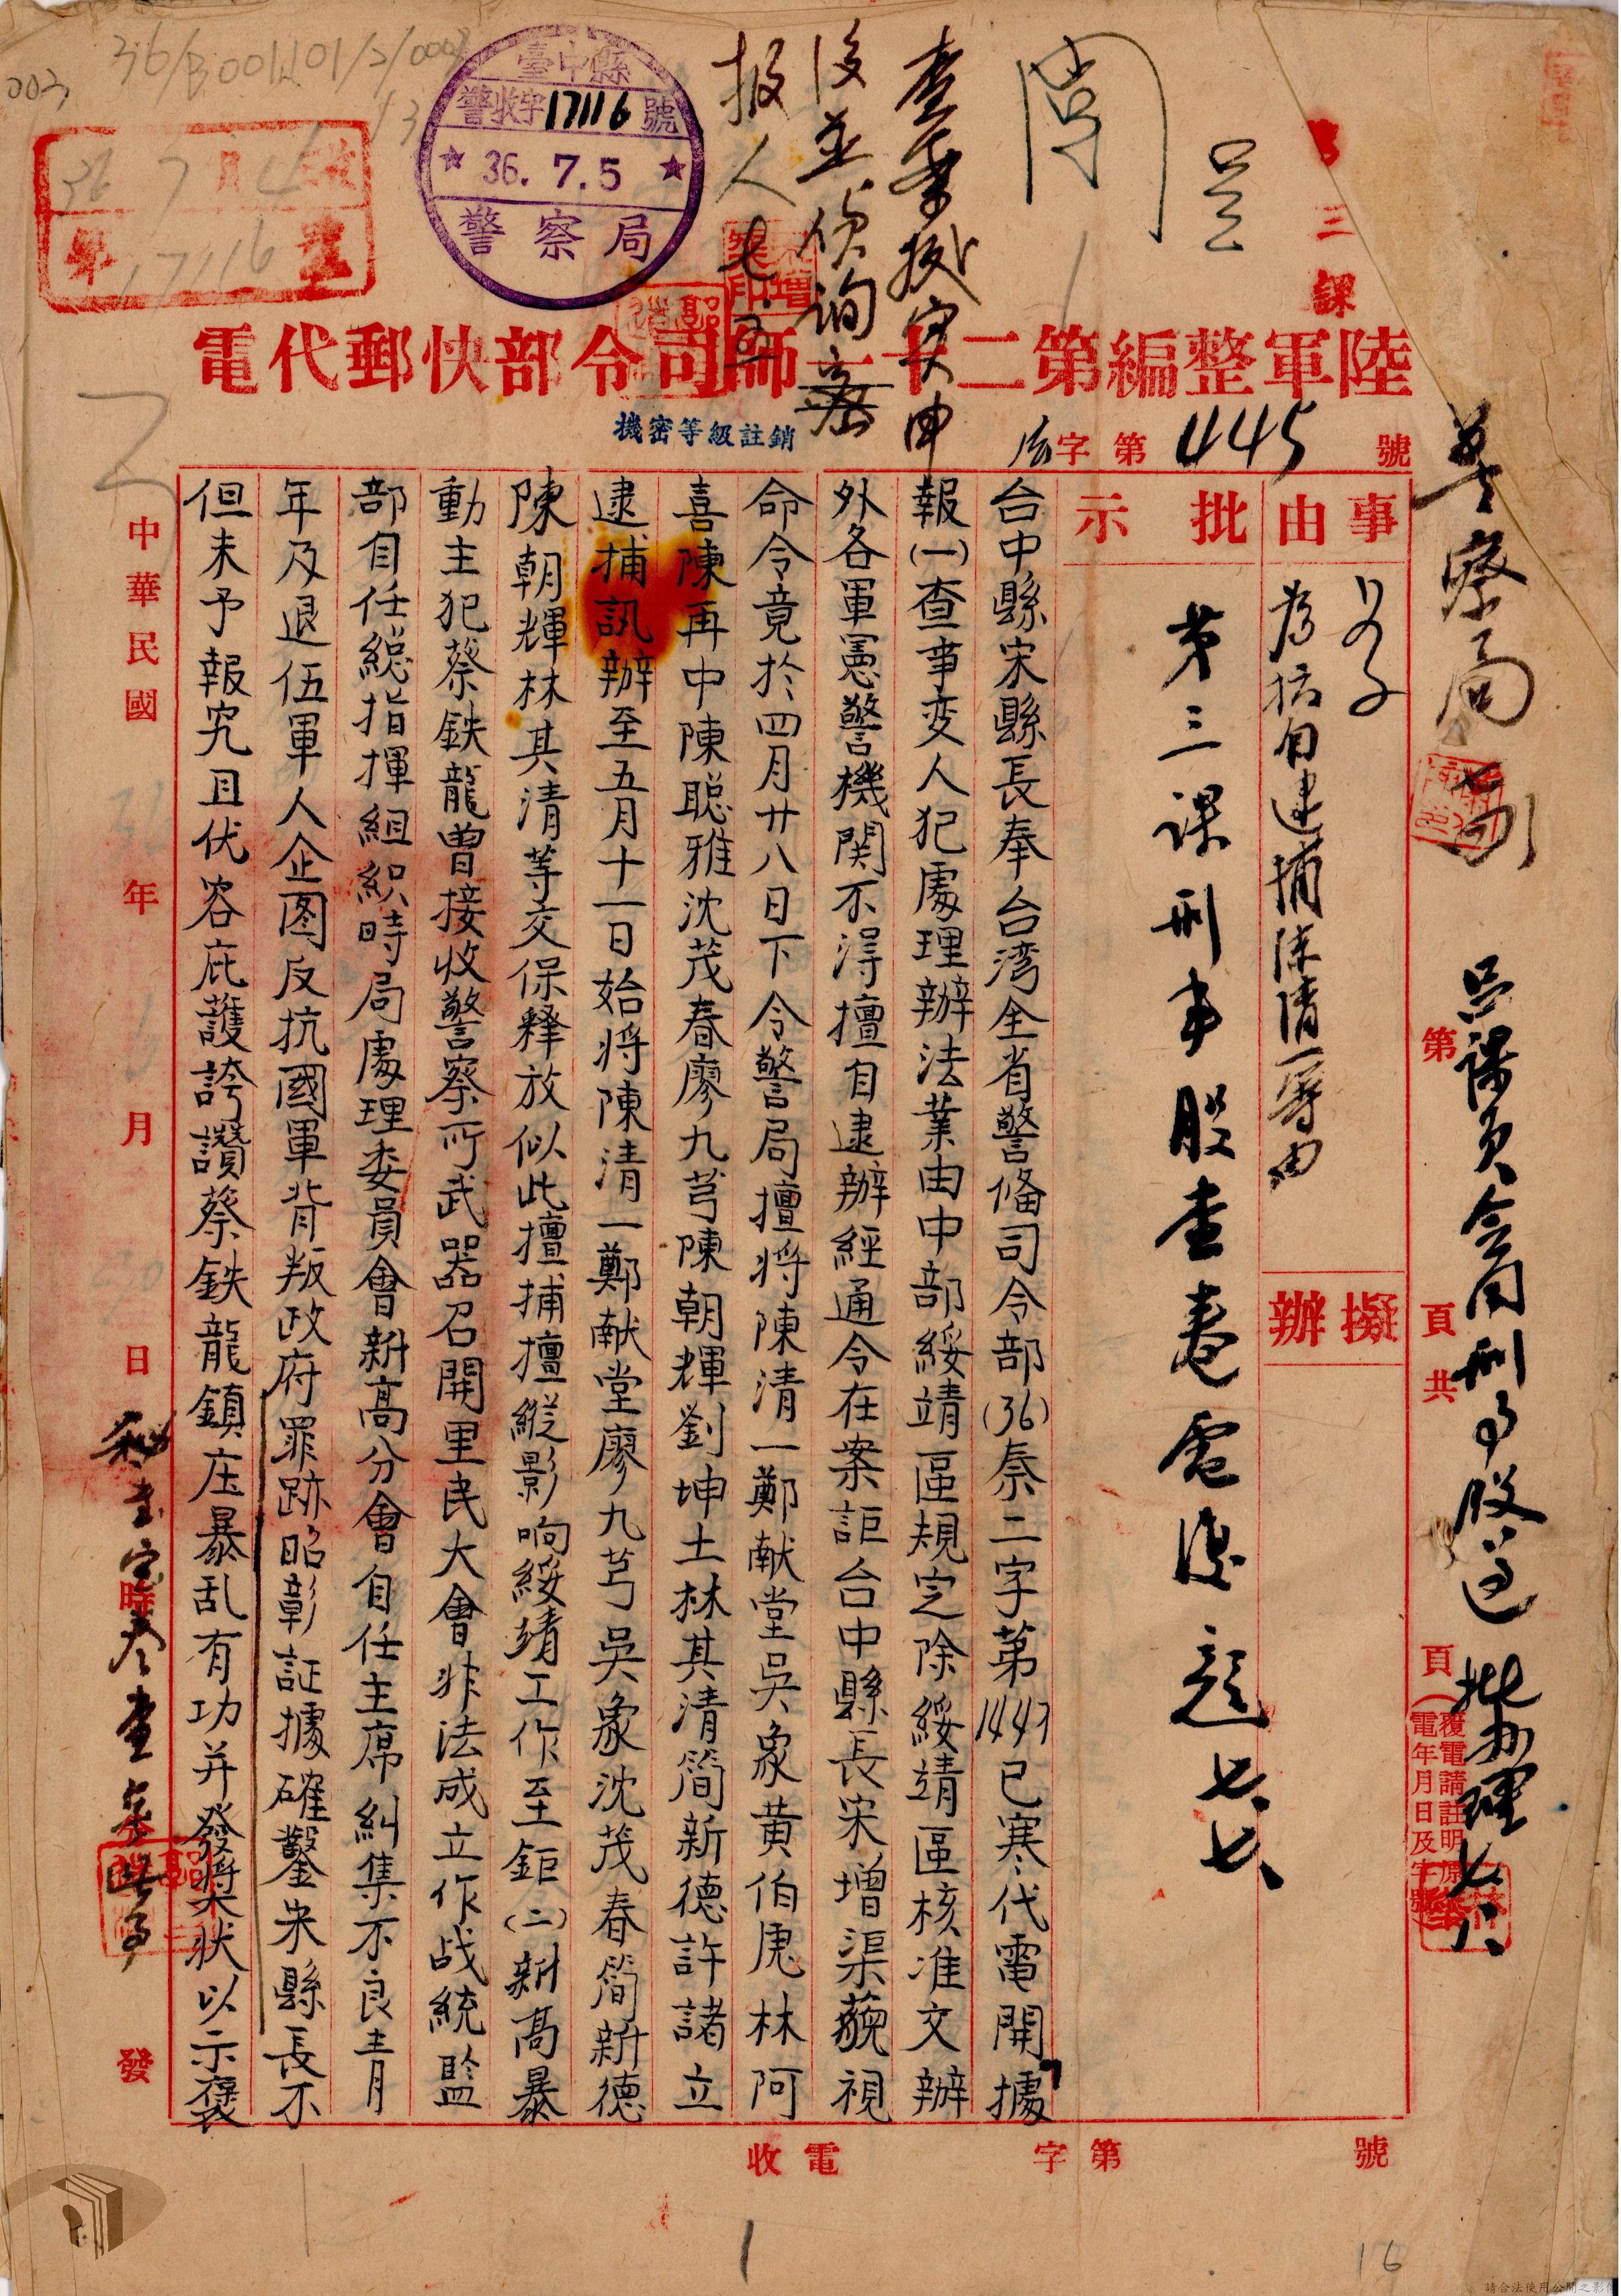 003
36/B001401/2/003
臺中縣
警收字17116號
36.7.5
警察局
收
36 7月4
第17116號
三課
閱
查案據實申
後並偵詢密
报人
七.五
陸軍整編第二十一師司令部快郵代電
機密等級註銷
法字第445號
事由
為擅自逮捕陳清一等由
擬辦
批示
第三課刑事股查卷電復
七七
警察局
呂課員會同刑事股迅
批辦理七八
第頁共頁
覆電請註明原電年月日及字號
台中縣宋縣長奉台湾全省警偹司令部(36)叅二字第1447已寒代電開據
報(一)查事变人犯處理辦法業由中部綏靖區規定除綏靖區核准文辦
外各軍憲警機関不淂擅自逮辦經通令在案詎台中縣長宋增渠藐視
命令竟於四月廿八日下令警局擅将陳清一鄭献堂吳象黄伯虎林阿
喜陳再中陳聪雅沈茂春廖九芎陳朝輝劉坤土林其清简新德許諸立
逮捕訊辦至五月十一日始将陳清一鄭献堂廖九芎吳象沈茂春简新德
陳朝輝林其清等交保释放似此擅捕擅縱影响綏靖工作至鉅(二)新高暴
動主犯蔡鉄龍曽接收警察所武器召開里民大會非法成立作战統監
部自任総指揮組織時局處理委員會新高分會自任主席糾集不良青
年及退伍軍人企图反抗國軍背叛政府罪跡昭彰証據確鑿宋縣長不
但未予報究且伏容庇護誇讚蔡鉄龍鎮庄暴乱有功并發奬状以示褒
中華民國年月日時發
電收
字第號
1
16
請合法使用公開之影